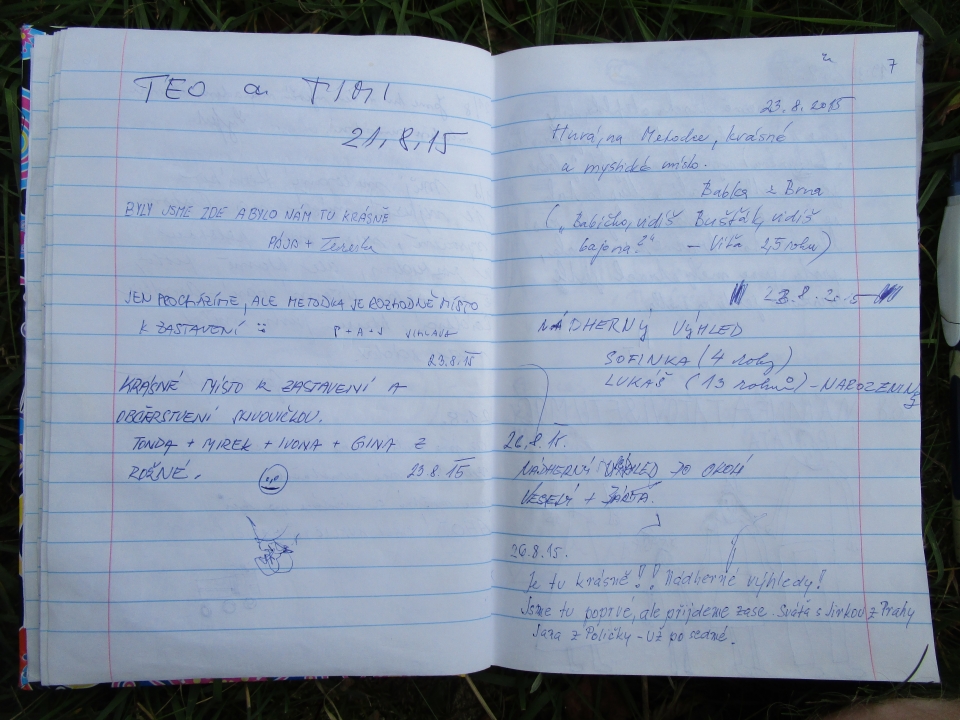 TEO a TIMI
21.8.15
BYLY JSME ZDE A BYLO NÁM TU KRÁSNĚ
PÁJA + Terezka
JEN PROCHÁZÍME, ALE METODKA JE ROZHODNĚ MÍSTO
K ZASTAVENÍ
P+A+J JIHLAVA
23.8.15
KRÁSNÉ MÍSTO K ZASTAVENÍ A
OBČERSTVENÍ SLIVOVIČKOU.
TONDA + MIREK + IVONA + GINA Z
ROŽNÉ. 23.8.15
7
23.8.2015
Hurá, na Metodce, krásné
a mystické místo.
Babka z Brna
("Babičko, vidíš Bušťák, vidíš
bajona?" - Víťa 2,5 roku)
23.8.2015
NÁDHERNÝ VÝHLED
SOFINKA (4 roky)
LUKÁŠ (13 roků) - NAROZENINY
26.8.15.
NÁDHERNÝ VÝHLED DO OKOLÍ
VESELÍ +
26.8.15.
Je tu krásně!! Nádherné výhledy!
Jsme tu poprvé, ale přijdeme zase Sváťa s Jirkou z Prahy
Jana z Poličky - Už po sedmé.